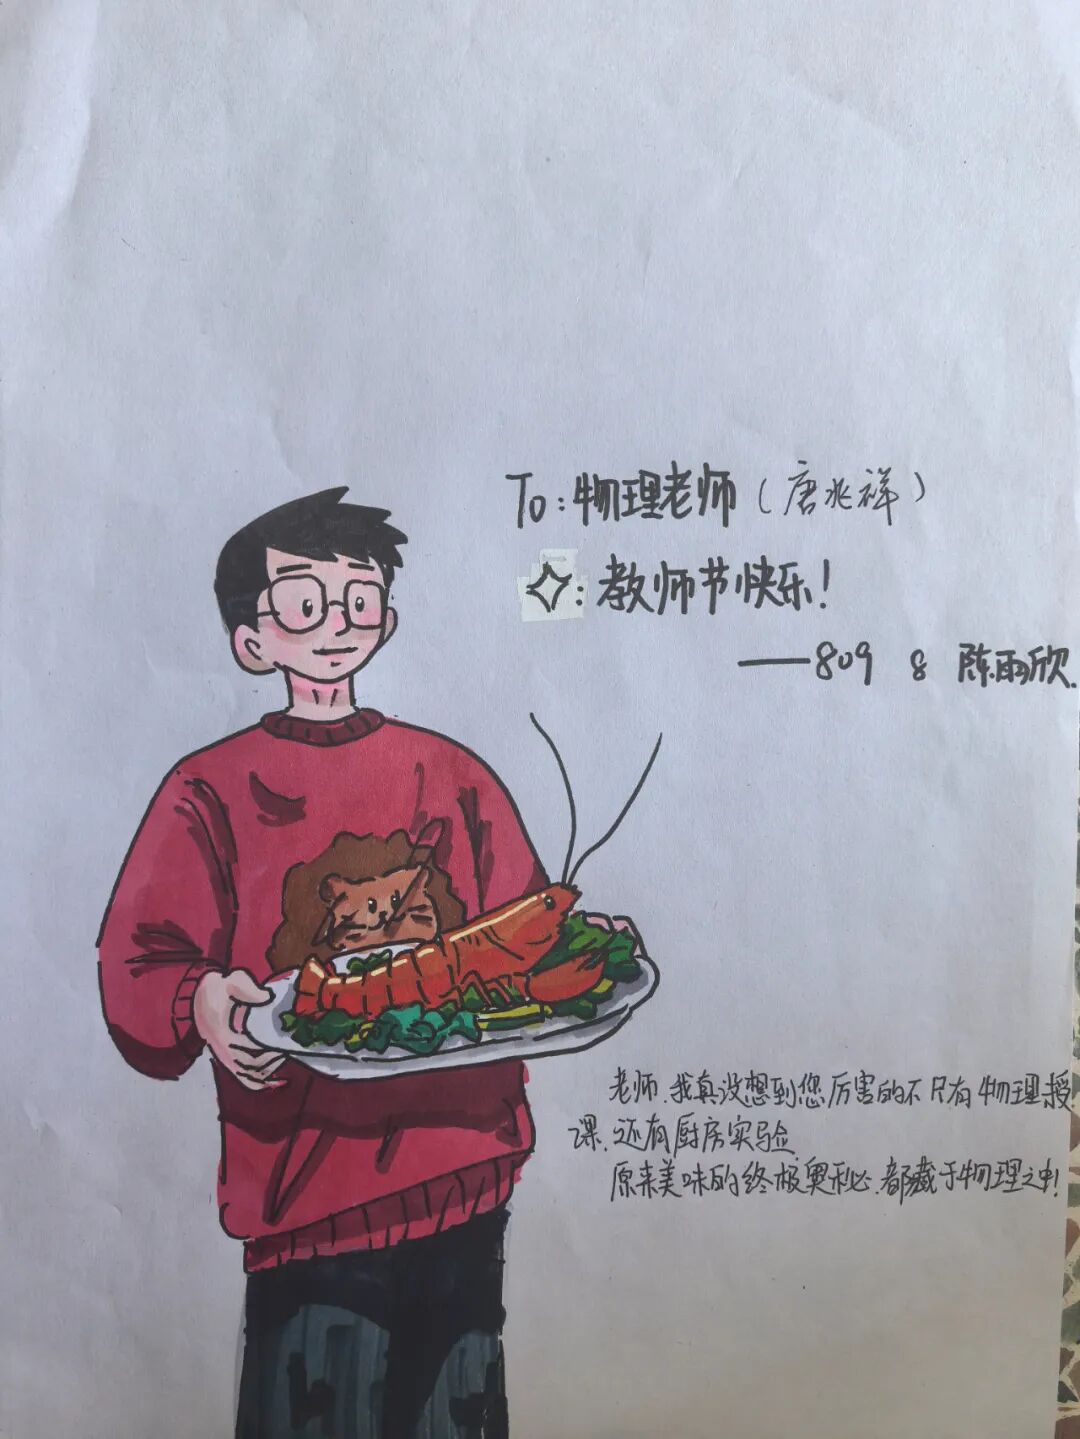 To:物理老师(唐兆祥)
✧:教师节快乐!
——809 8 陈雨欣.
老师.我真没想到您厉害的不只有物理授
课.还有厨房实验.
原来美味的终极奥秘.都藏于物理之中!